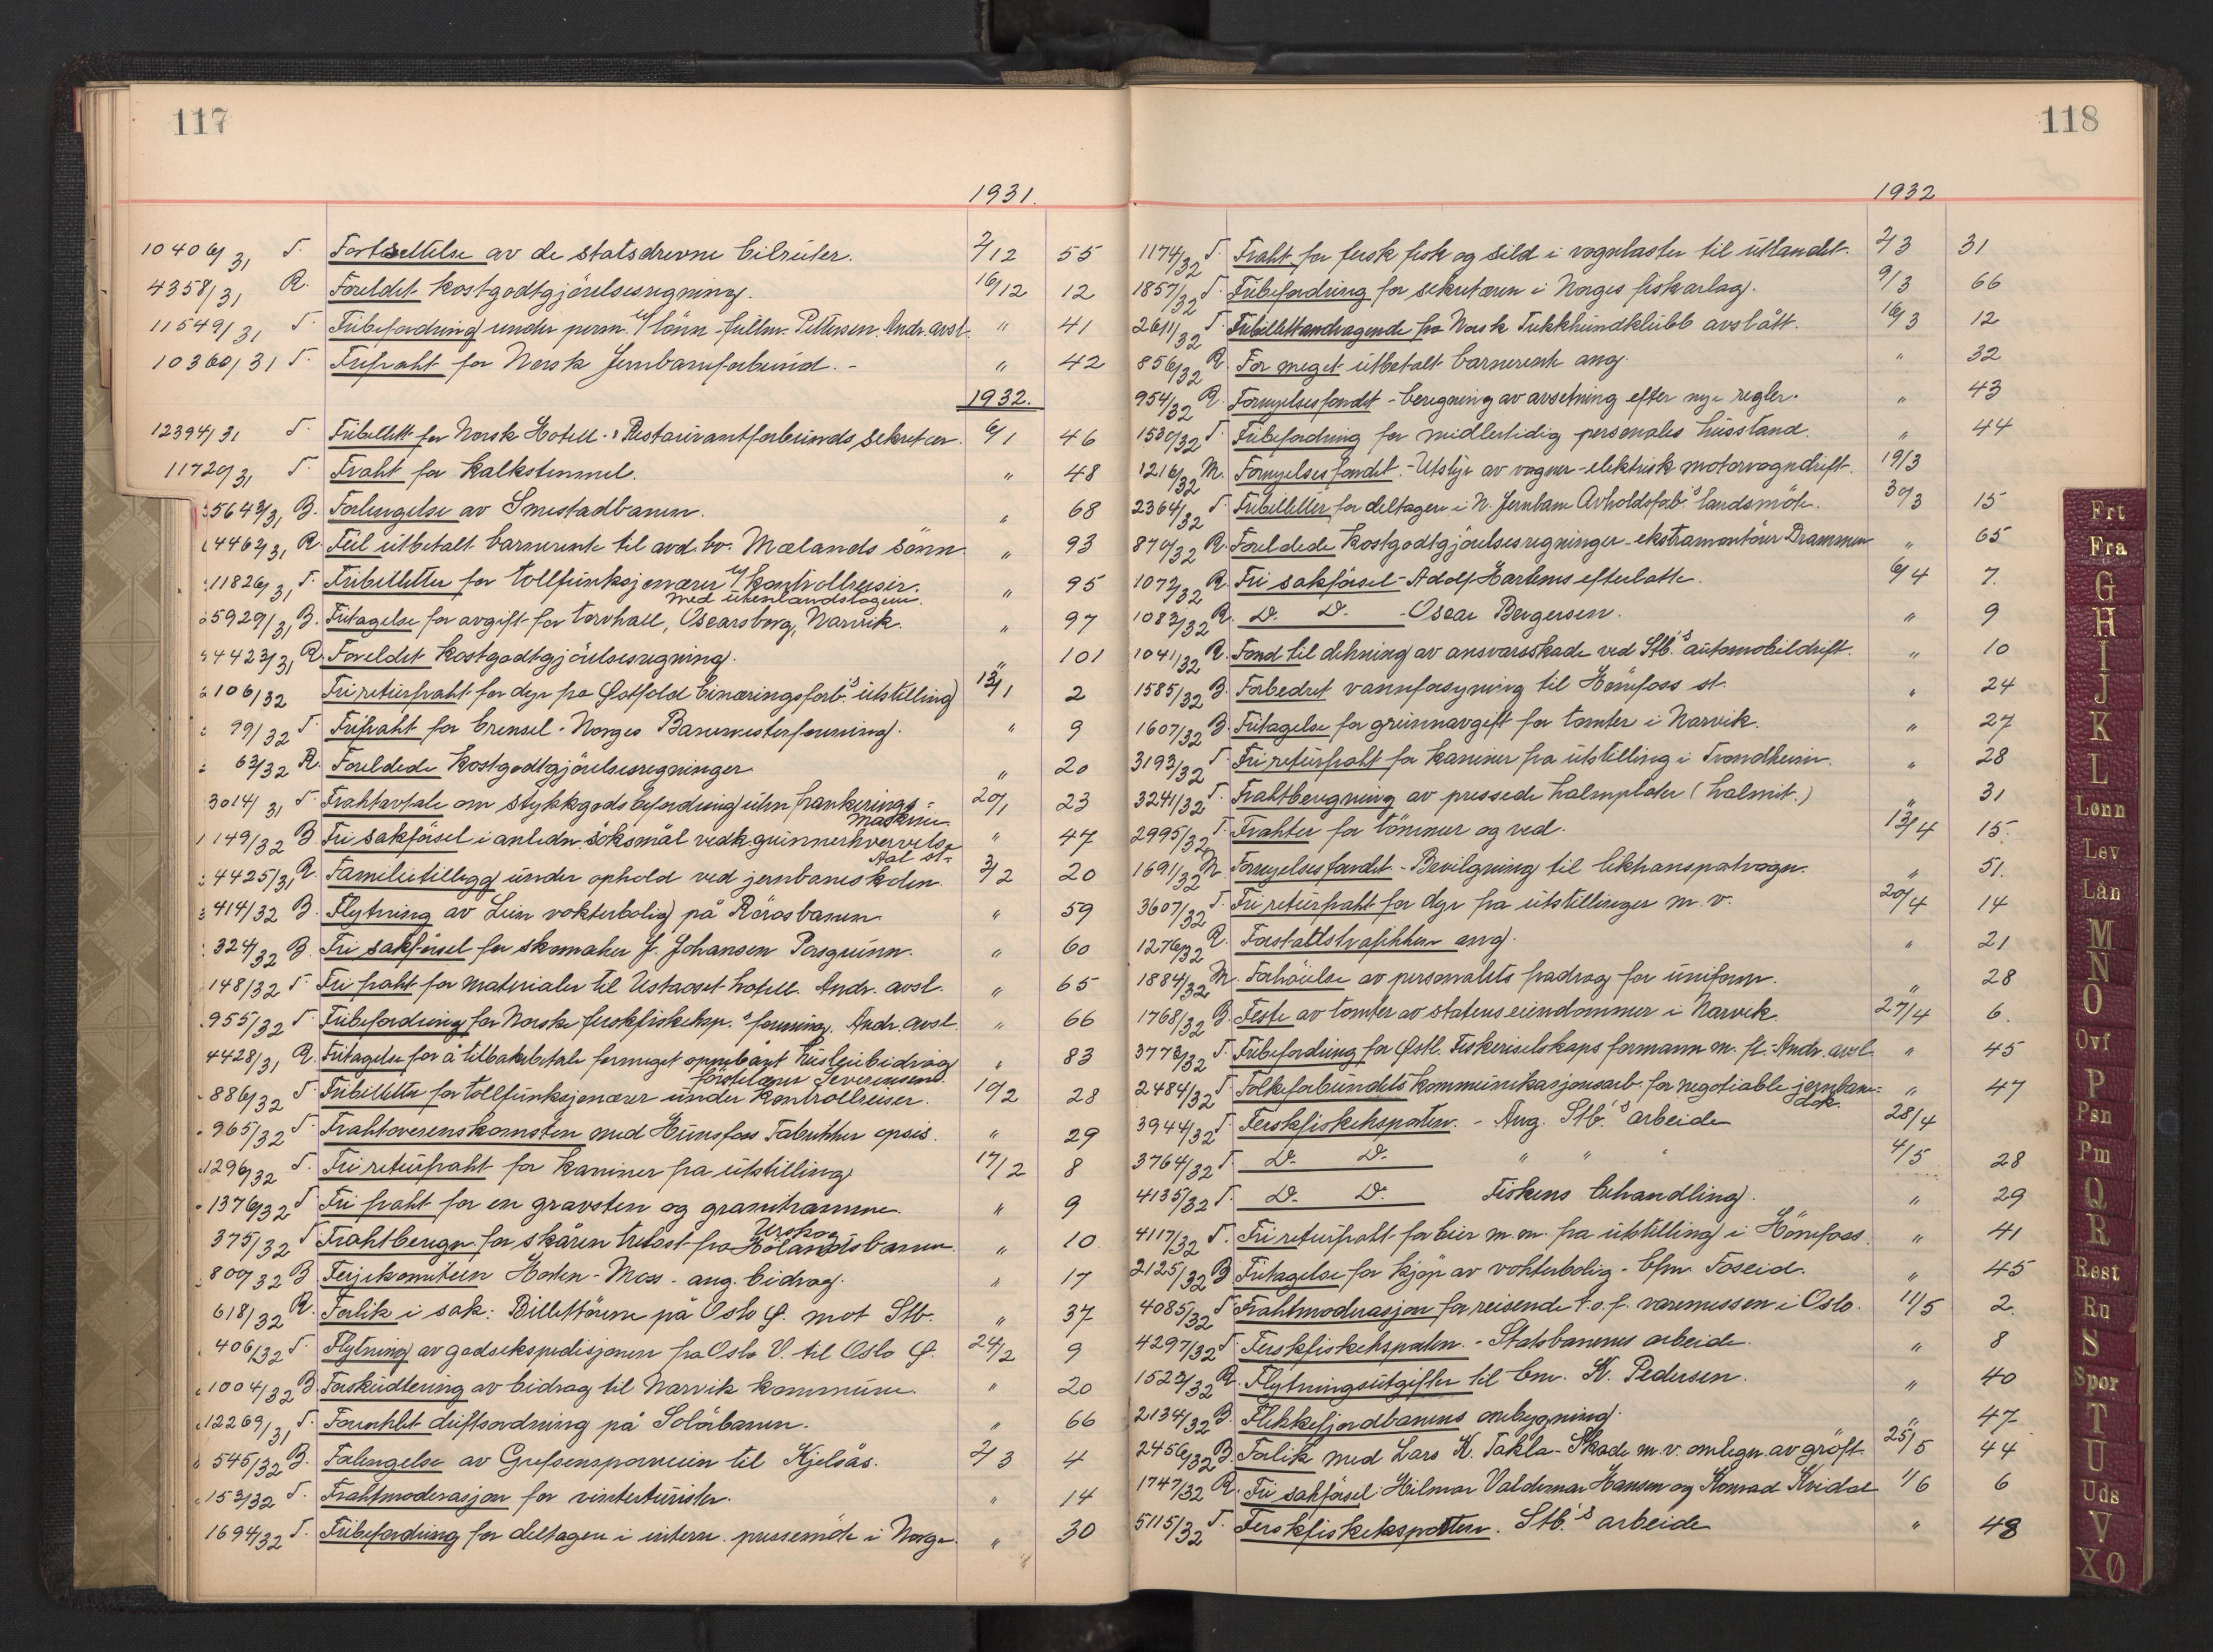 117
1931.
10406/31 T. Fortsettelse av de statsdrevne bilruter. 2/12 55
4358/31 R. Foreldet kostgodtgjörelsesregning. 16/12 12
11549/31 T. Fribefordring under perm. u/lönn - fullm. Pettersen. Andr. avsl. " 41
10360/31 T. Frifraht for Norsk Jernbaneforbund. - " 42
1932.
12394/31 T. Fribillett for Norsk Hotell- & Restaurantforbunds sekretær. 6/1 46
11720/31 T. Fraht for kalkstenmel. " 48
5643/31 B. Forlengelse av Smestadbanen. " 68
4462/31 R. Feil utbetalt barnerente til avd. bv. Mælands sönn " 93
11826/31 T. Fribilletter for tollfunksjonærer u/kontrollreiser. " 95
med utenlandstogene.
5929/31 B. Fritagelse for avgift for torvhall, Oscarsborg, Narvik. " 97
4423/31 R. Foreldet kostgodtgjörelsesregning. " 101
106/32 Fri returfraht for dyr fra Østfold binæringsforb.'s utstilling 13/1 2
99/32 T Frifraht for brensel - Norges Banemesterforening. " 9
63/32 R. Foreldede kostgodtgjörelsesregninger " 20
3014/31 T. Frahtavtale om stykkgodsbefordring uten frankerings- 20/1 23
maskin
149/32 B. Fri sakförsel i anledn. söksmål vedk. grunnerhvervelse " 47
Aal st.
4425/31 R. Familietillegg under ophold ved jernbaneskolen. 3/2 20
414/32 B. Flytning av Lien vokterbolig på Rörosbanen " 59
324/32 B. Fri sakförsel for skomaker J. Johansen Porsgrunn. " 60
148/32 T Fri fraht for materialer til Ustaoset hotell. Andr. avsl. " 65
955/32 T. Fribefordring for Norske ferskfiskeksp.'s forening. Andr. avsl. " 66
4428/31 R. Fritagelse for å tilbakebetale formeget oppebåret husleiebidrag " 83
Severinsen.
886/32 T Fribilletter for tollfunksjonærer under kontrollreiser. 10/2 28
965/32 T. Frahtoverenskomsten med Hunsfos Fabrikker opsis. " 29
1296/32 T. Fri returfraht for kaniner fra utstilling 17/2 8
1376/32 T Fri fraht for en gravsten og granitramme. " 9
Urskog
375/32 T Frahtberegn. for skåren trelast fra Hölandsbanen. " 10
800/32 B Ferjekomiteen Horten - Moss - ang. bidrag. " 17
618/32 R. Forlik i sak: Billettörene på Oslo Ø. mot Stb. " 37
406/32 T. Flytning av godsekspedisjonen fra Oslo V. til Oslo Ø. 24/2 9
1004/32 B Forskudtering av bidrag til Narvik kommune. " 20
12269/31 T. Forenklet driftsordning på Solörbanen. " 66
545/32 B. Forlengelse av Grefsensporveien til Kjelsås. 2/3 4
153/32 T. Frahtmoderasjon for vinterturister. " 14
1694/32 T. Fribefordring for deltagere i intern. pressemöte i Norge. " 30
118
1932
1174/32 T. Fraht for fersk fisk og sild i vognlaster til utlandet. 2/3 31
1857/32 T. Fribefordring for sekretæren i Norges fiskarlag. 9/3 66
2611/32 T. Fribillettandragende fra Norsk Trekkhundklubb avslått. 16/3 12
856/32 R. For meget utbetalt barnerente ang. " 32
954/32 R. Fornyelsesfondet - beregning av avsetning efter nye regler. " 43
1530/32 T. Fribefordring for midlertidig personales husstand. " 44
1216/32 M. Fornyelsesfondet. - Utstyr av vogner - elektrisk motorvogndrift. 19/3
2364/32 T Fribilletter for deltagere i N. Jernbane Avholdsforb.'s landsmöte. 30/3 15
870/32 R. Foreldede kostgodtgjörelsesregninger - ekstramontörer Drammen " 65
1072/32 R. Fri sakförsel - Adolf Karlsens efterlatte. 6/4 7.
1082/32 R. D. D. - Oscar Bergersen. " 9
1041/32 R. Fond til dekning av ansvarsskade ved Stb.'s automobildrift. " 10
1585/32 B. Forbedret vannforsyning til Hönefoss st. " 24
1607/32 B. Fritagelse for grunnavgift for tomter i Narvik. " 27
3193/32 T Fri returfraht for kaniner fra utstilling i Trondheim. " 28
3241/32 T. Frahtberegning av pressede halmplater (halmit.) " 31
2995/32 T. Frahter for tömmer og ved. 13/4 15.
1691/32 M Fornyelsesfondet. - Bevilgning til liktransportvogn. " 51.
3607/32 T. Fri returfraht for dyr fra utstillinger m. v. 20/4 14
1276/32 R. Forstattstrafikken ang. " 21
1884/32 M. Forhöielse av personalets fradrag for uniform. " 28
1768/32 B. Feste av tomter av statens eiendommer i Narvik. 27/4 6.
3773/32 T. Fribefordring for Østl. Fiskeriselskaps formann m. fl. - Andr. avsl. " 45
2484/32 T Folkeforbundets kommunikasjonsarb. for negotiable jernbane- " 47
dok.
3944/32 T. Ferskfiskeksporten. - Ang. Stb.'s arbeide 28/4
3764/32 T. D. D. " " " 4/5 28
4135/32 T. D. D. Fiskens behandling. " 29
4117/32 T. Fri returfraht for bier m. m. fra utstilling i Hönefoss. " 41
2125/32 B Fritagelse for kjöp av vokterbolig - bfm. Foseid. " 45
4085/32 T Frahtmoderasjon for reisende t. o. f. varemessen i Oslo. 11/5 2.
4297/32 T. Ferskfiskeksporten. - Statsbanenes arbeide. " 8
1522/32 R. Flytningsutgifter til bm. K. Pedersen. " 40
2134/32 B. Flekkefjordbanens ombygning. " 47
2456/32 B. Forlik med Lars K. Takla - Skade m. v. omlegn. av gröft. 25/5 44
1747/32 R. Fri sakförsel: Hilmar Valdemar Hansen og Konrad Kvidal 1/6 6
5115/32 T. Ferskfiskeksporten. Stb.'s arbeide " 48
Frt
Fra
G
H
I
J
K
L
Lønn
Lev
Lån
M
N
O
Ovf
P
Psn
Pm
Q
R
Rest
Ru
S
Spor
T
U
Uds
V
XØ